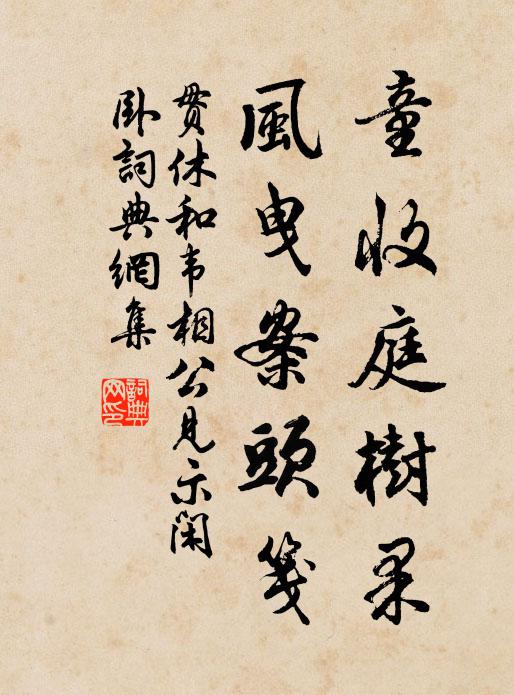 童收庭樹果
風曳案頭箋
貫休和韦相公見示閑
卧詞典網集
詞典
网印